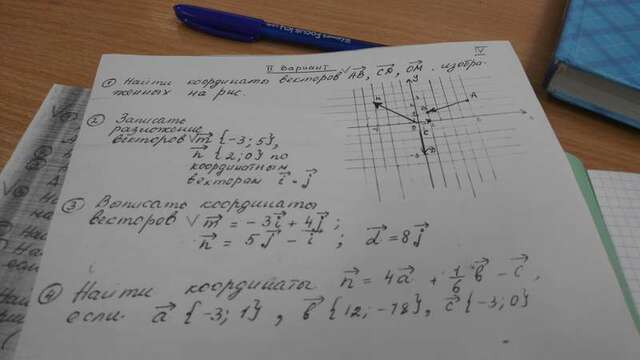 V
II Вариант
① Найти координаты векторов √AB, CD, OM. изобра-
женных на рис.
② Записать
разложение
векторов √m {-3; 5},
n {2; 0} по
координатным
векторам i и j
③ Выписать координаты
векторов √m = -3i + 4j;
n = 5j - i; d = 8j
④ Найти координаты n = 4a + 1/6 b - c,
если a {-3; 1}, b {12; -18}, c {-3; 0}
A